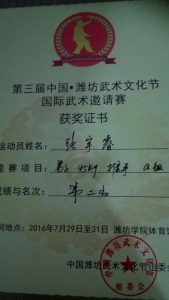 第三届中国•潍坊武术文化节
国际武术邀请赛
获奖证书
运动员姓名: 张宇春
竞赛项目: 男子 45kg 推手 A组
成绩与名次: 第二名
时间地点: 2016年7月29日至31日 潍坊学院体育
中国潍坊武术文化节组委
组委会